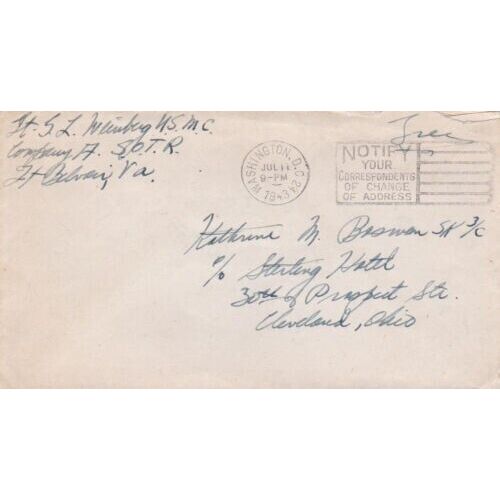 Lt. S. L. Weinberg U.S.M.C.
Company A. S.O.T.R.
Ft Belvoir, Va.
Free
WASHINGTON, D.C. 24
JUL 11
9-PM
1943
NOTIFY
YOUR
CORRESPONDENTS
OF CHANGE
OF ADDRESS
Kathrine M. Bosman SK 3/c
c/o Sterling Hotel
30th & Prospect Str.
Cleveland, Ohio